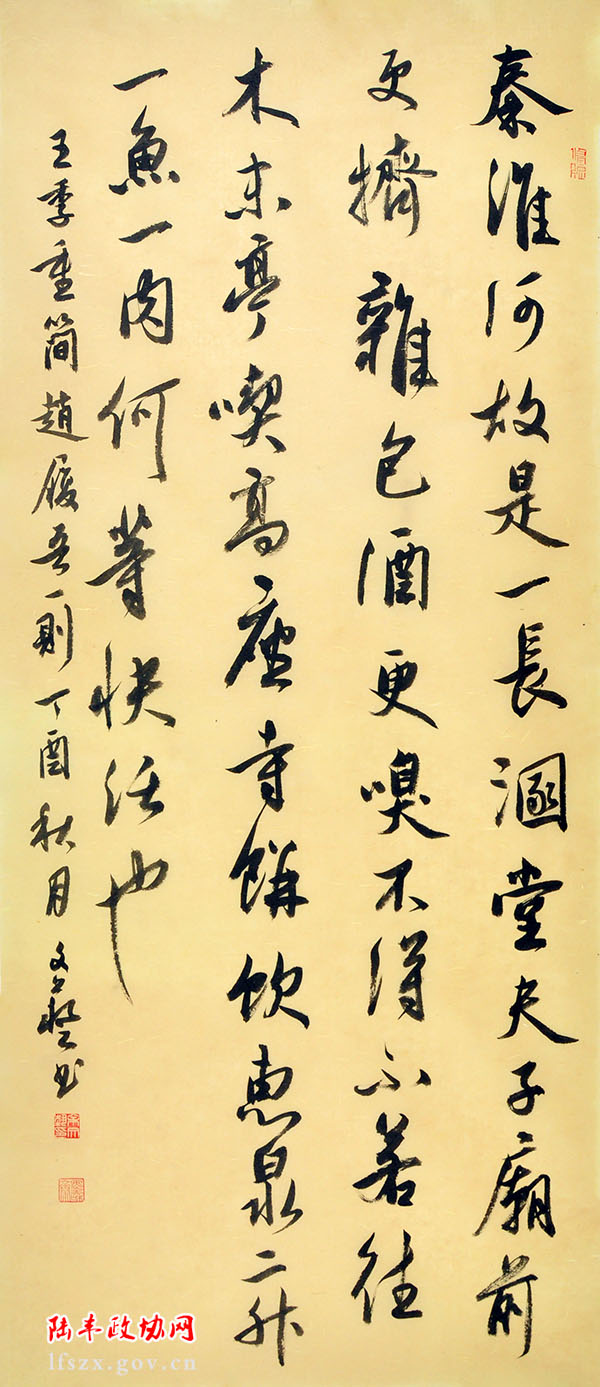 秦淮河故是一長溷堂夫子廟前
更擠雜包酒更嗅不得不若往
木末亭喫高座寺餅飲惠泉二升
一魚一肉何等快活也
王季重簡趙履吾一則丁酉秋月
陆丰政协网
lfszx.gov.cn